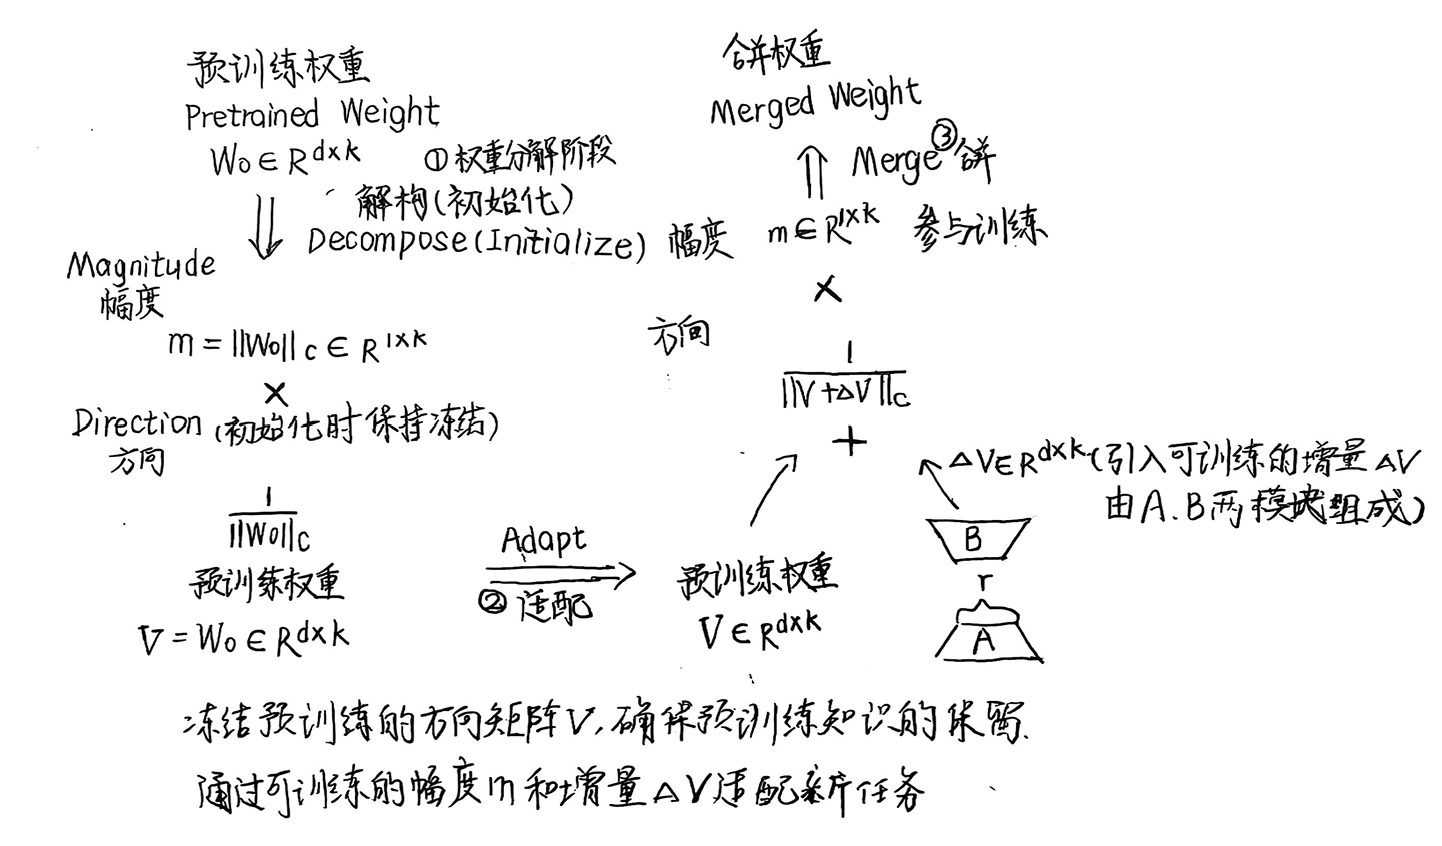 预训练权重
Pretrained Weight
W₀ ∈ R^{d×k}
①权重分解阶段
解构(初始化)
Decompose(Initialize)
Magnitude
幅度
m = ||W₀||c ∈ R^{1×k}
×
Direction (初始化时保持冻结)
方向
1
||W₀||c
预训练权重
V = W₀ ∈ R^{d×k}
Adapt
②适配
合并权重
Merged Weight
Merge③合并
幅度 m ∈ R^{1×k} 参与训练
×
方向
1
||V+ΔV||c
+
预训练权重
V ∈ R^{d×k}
ΔV∈R^{d×k}(引入可训练的增量ΔV
由A.B两模块组成)
B
r
A
冻结预训练的方向矩阵V,确保预训练知识的保留.
通过可训练的幅度m和增量ΔV适配新任务